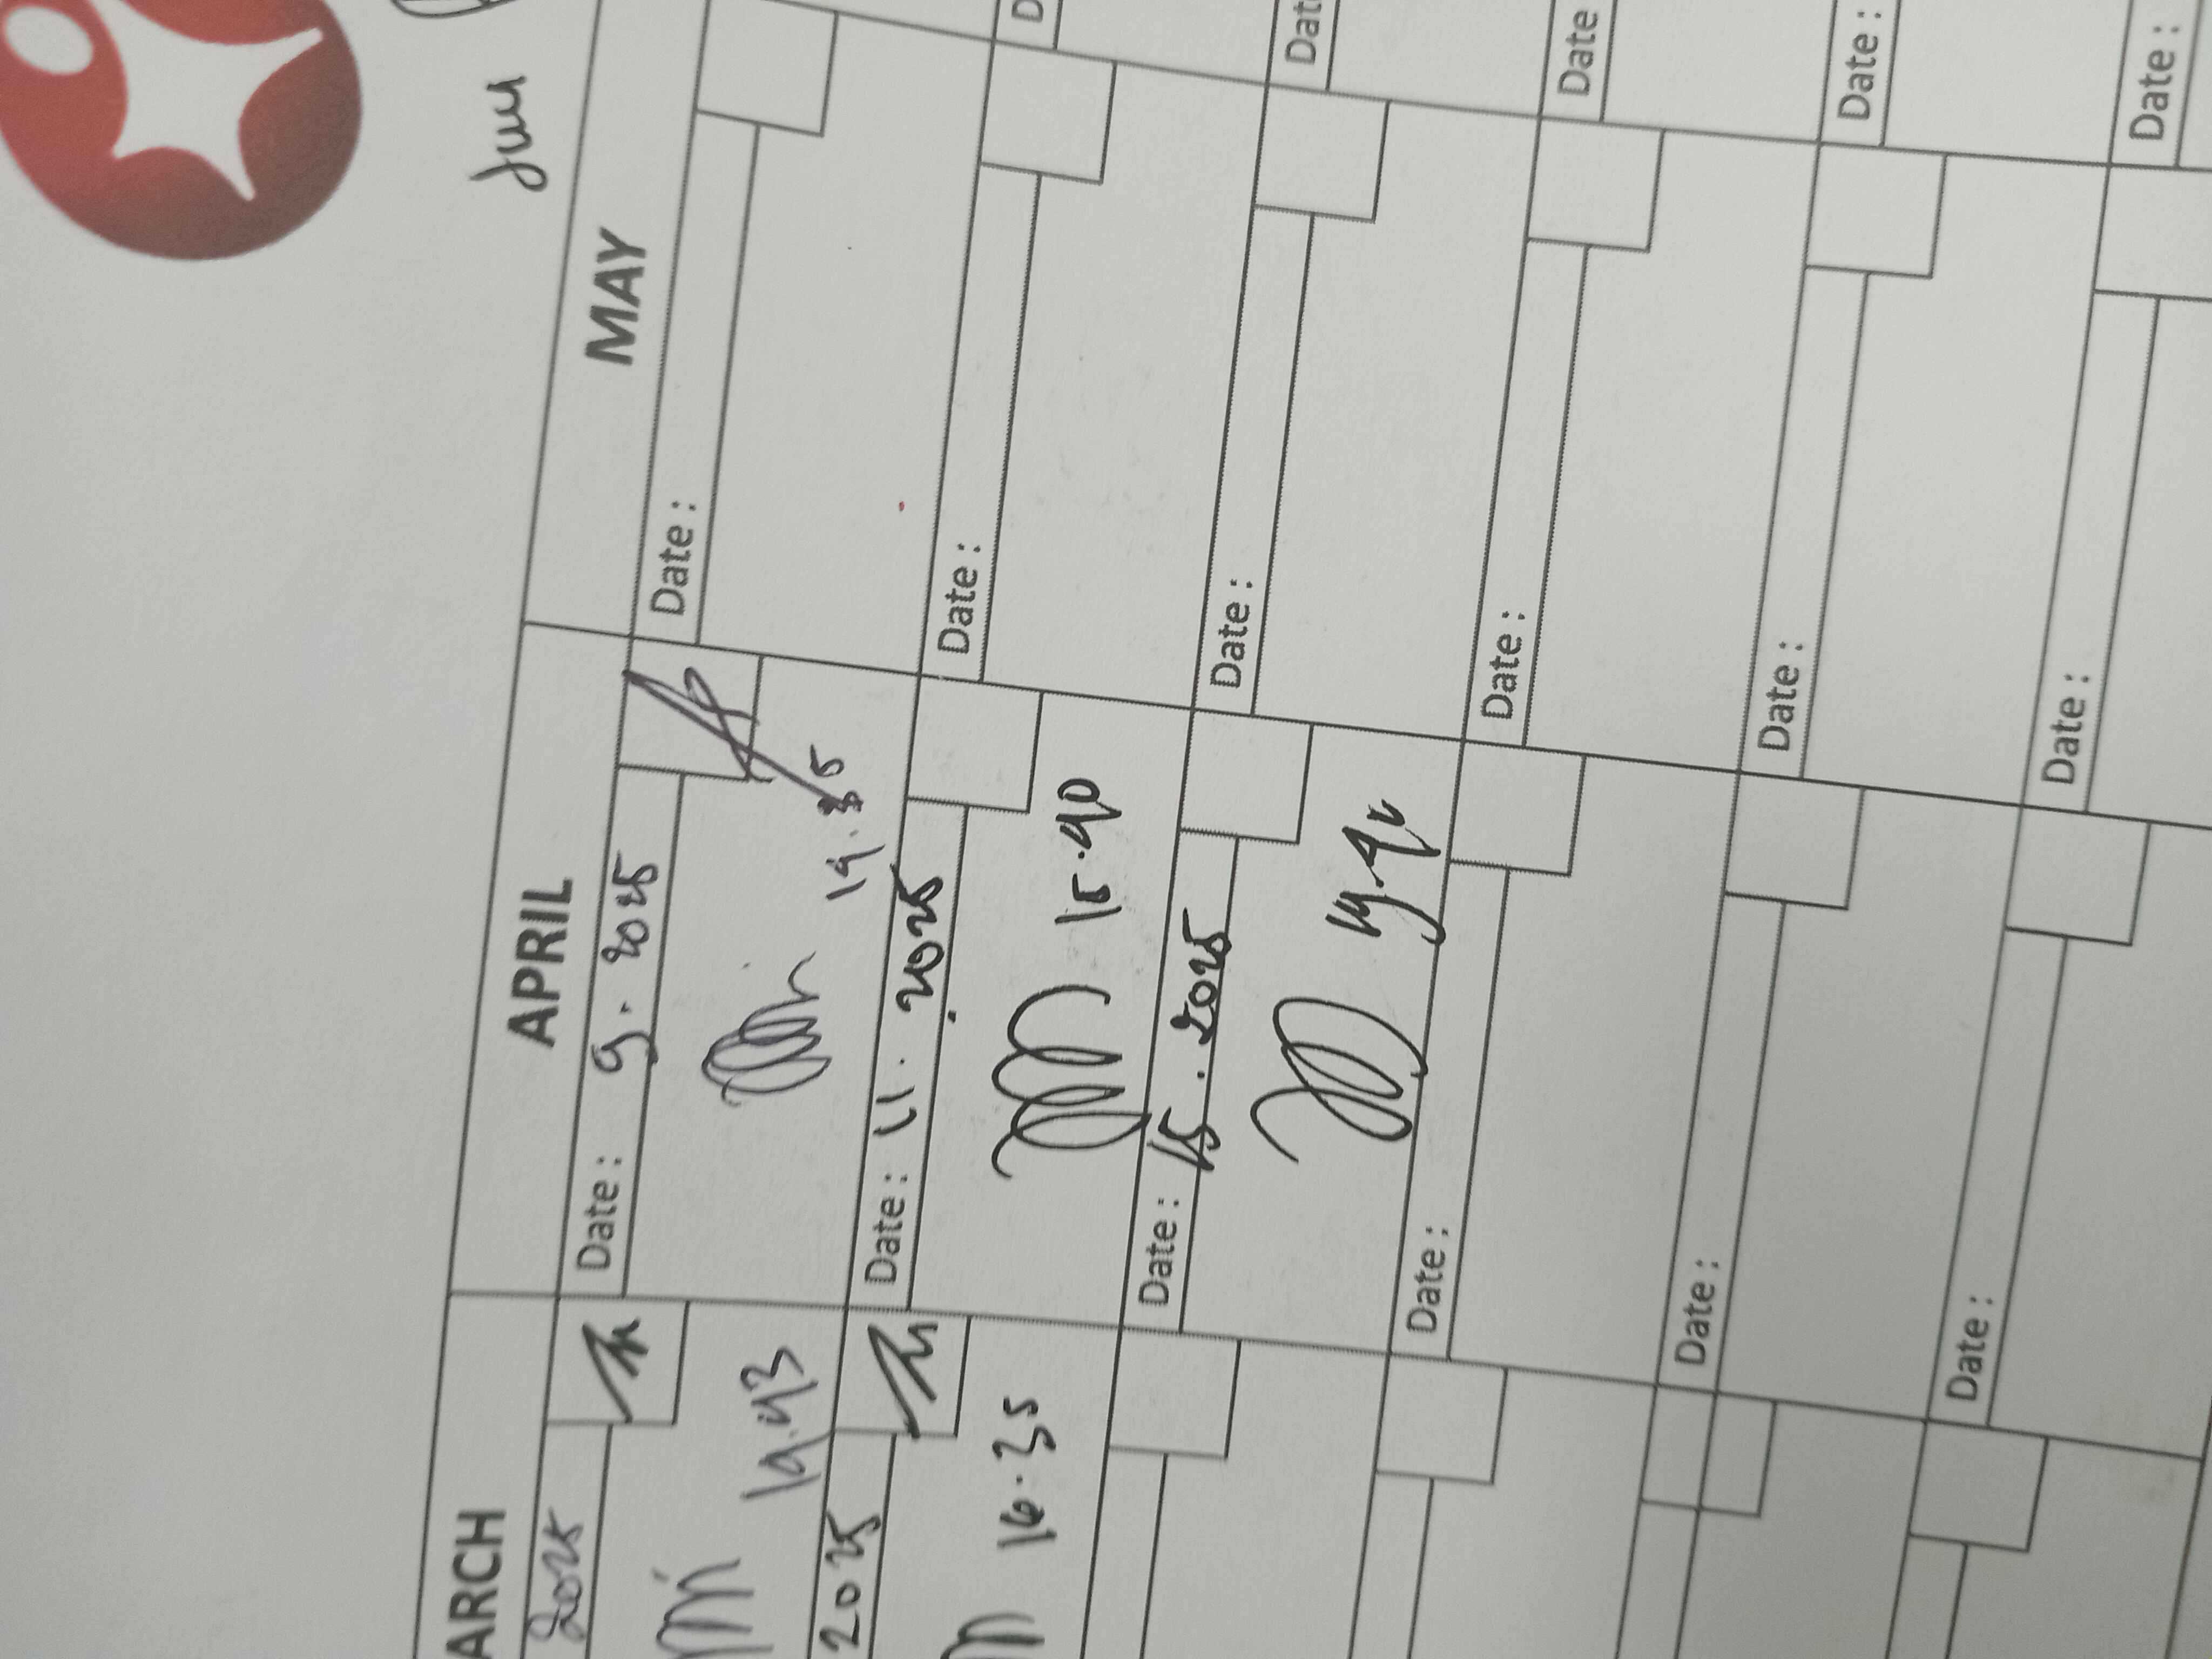 ARCH APRIL MAY
2025 Date: 9. 2025 Date:
19.43 19.35
2025 Date: 11. 2025 Date: D
16.35 15.40
Date: 15. 2025 Date: Dat
19.42
Date: Date: Date
Date: Date: Date:
Date: Date: Date: